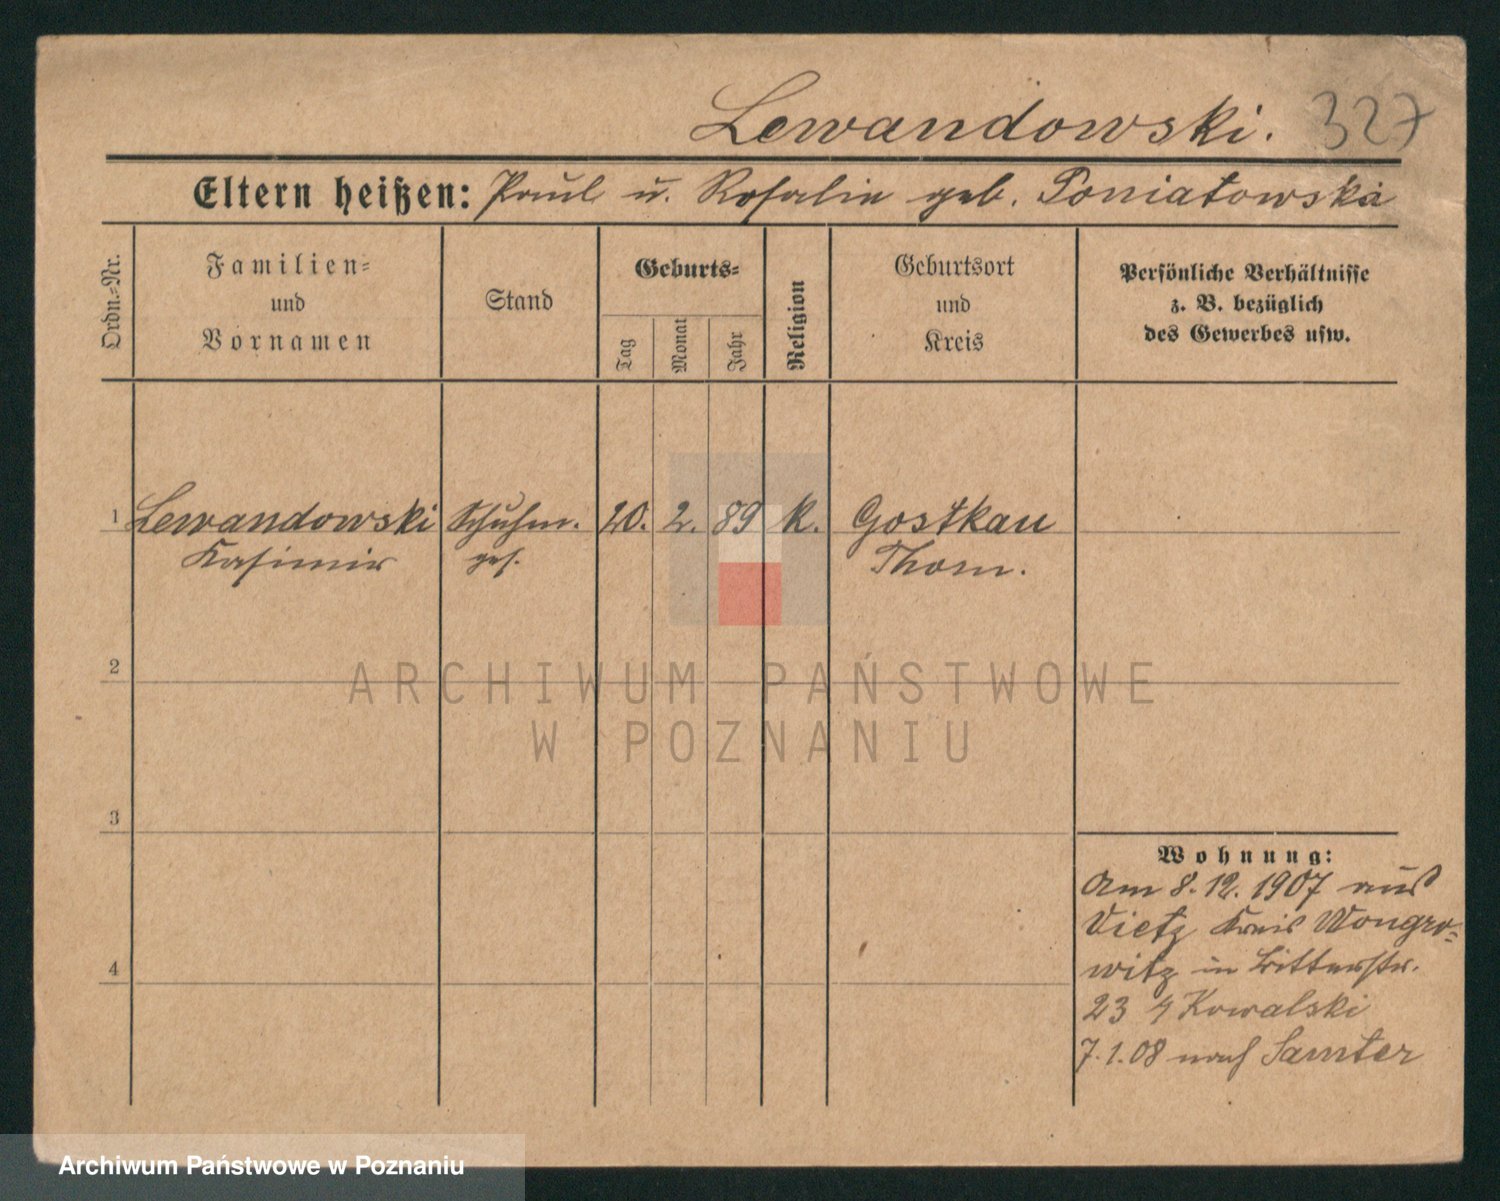 Lewandowski. 327
Eltern heißen: Paul u. Rosalie geb. Poniatowska
Ordn.-Nr.
Familien-
und
Vornamen
Stand
Geburts-
Tag
Monat
Jahr
Religion
Geburtsort
und
Kreis
Persönliche Verhältnisse
z. B. bezüglich
des Gewerbes usw.
1 Lewandowski Schuhm. 20. 2. 89 k. Gostkau
Kasimir ges. Thorn.
2
ARCHIWUM PAŃSTWOWE
W POZNANIU
3
Wohnung:
Am 8.12.1907 aus
Vietz Kreis Wongro-
witz in Ritterstr.
23 Kowalski
4
7.1.08 nach Samter
Archiwum Państwowe w Poznaniu